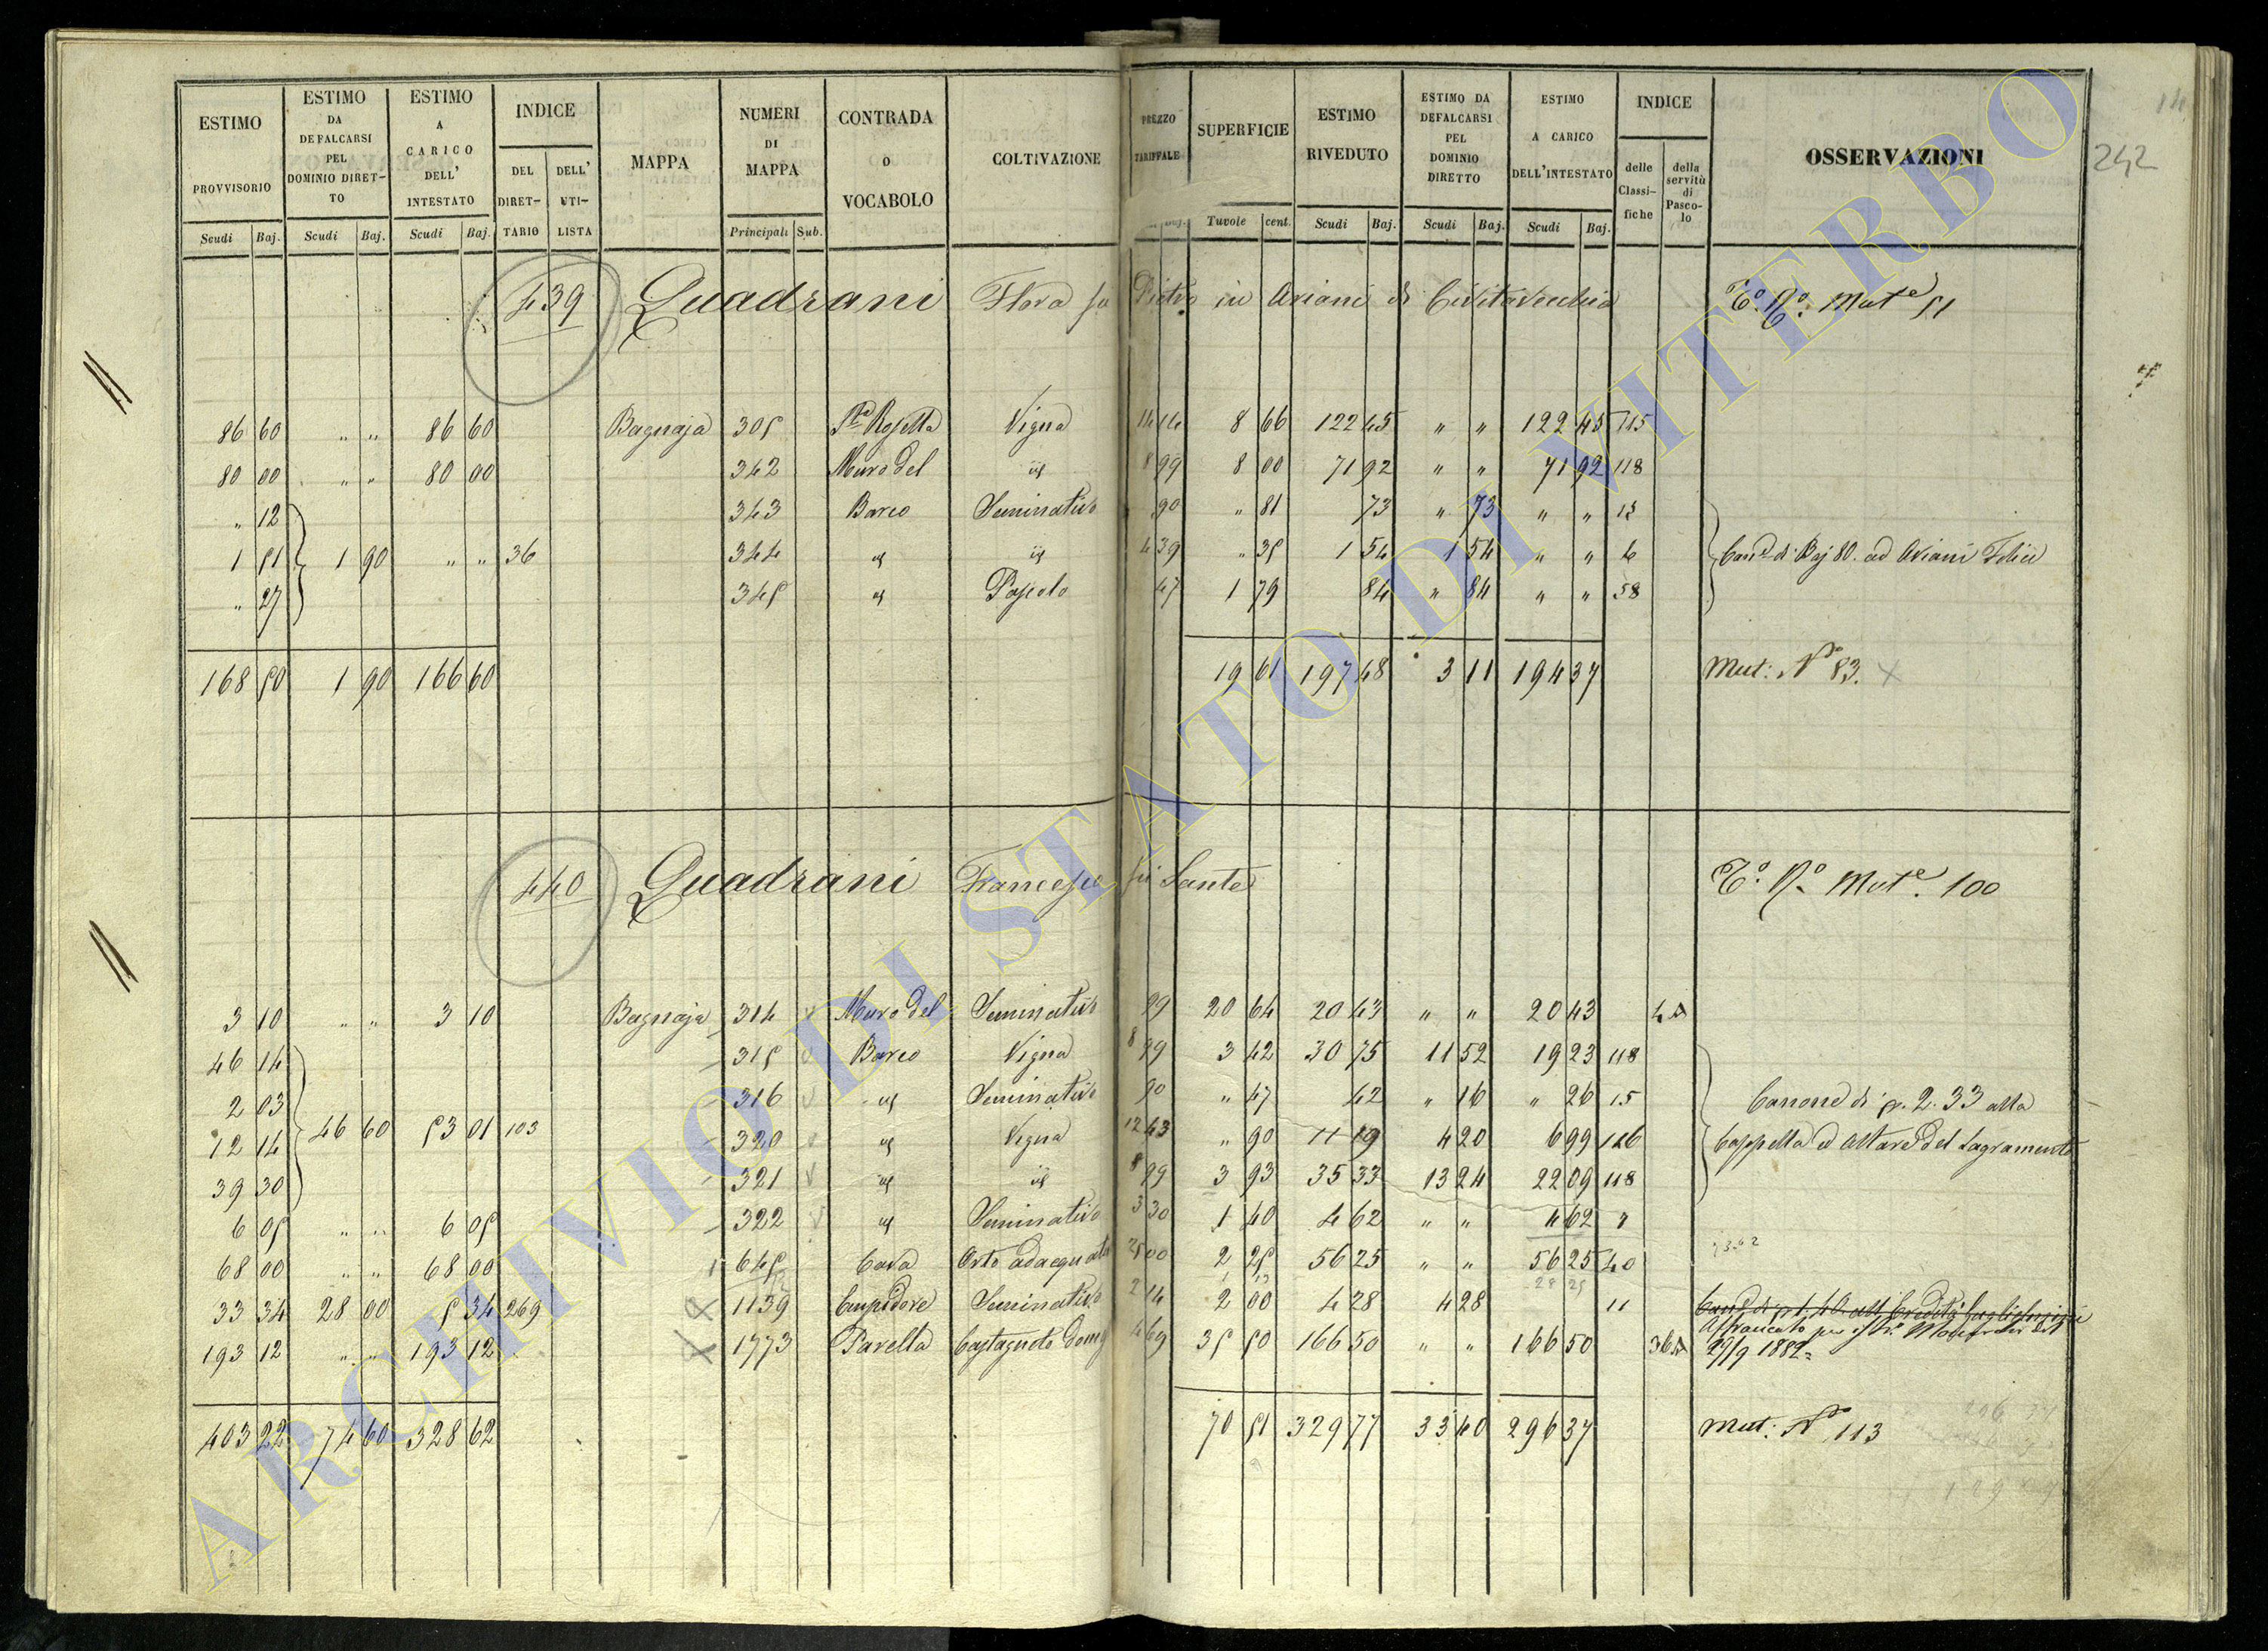 14
242
ESTIMO PROVVISORIO | ESTIMO DA DEFALCARSI PEL DOMINIO DIRET-TO | ESTIMO A CARICO DELL' INTESTATO | INDICE | MAPPA | NUMERI DI MAPPA | CONTRADA O VOCABOLO | COLTIVAZIONE | PREZZO TARIFFALE | SUPERFICIE | ESTIMO RIVEDUTO | ESTIMO DA DEFALCARSI PEL DOMINIO DIRETTO | ESTIMO A CARICO DELL'INTESTATO | INDICE | OSSERVAZIONI
DEL DIRET-TARIO | DELL' UTI-LISTA | delle Classi-fiche | della servitù di Pasco-lo
Scudi Baj. | Scudi Baj. | Scudi Baj. | Principali Sub. | Baj. | Tavole cent. | Scudi Baj. | Scudi Baj. | Scudi Baj.
439 Quadrani Flora fu Pietro in Aviani di Civitavecchia Mut.e 51
86 60 " " 86 60 Bagnaja 305 Vigna 14 14 8 66 122 45 " " 122 45 115
80 00 " " 80 00 342 Muro del id 8 99 8 00 71 92 " " 71 92 118
" 12 343 Barco Seminativo 90 " 81 73 " 73 " " 15
1 51 1 90 " " 36 344 id id 4 39 " 35 1 54 1 54 " " 6 Can.e di Baj 80. ad Aviani Felice
" 27 345 id Pascolo 47 1 79 84 " 84 " " 58
168 50 1 90 166 60 19 61 197 68 3 11 194 37 Mut: N.o 83. X
440 Quadrani Francesco fu Sante Mut.e 100
3 10 " " 3 10 Bagnaja 314 Muro del Seminativo 99 20 64 20 43 " " 20 43 4
46 14 315 Barco Vigna 8 99 3 42 30 75 11 52 19 23 118
2 03 316 id Seminativo 90 " 47 42 " 16 " 26 15 Canone di 2.33 alla
12 14 46 60 53 01 103 320 id Vigna 12 43 " 90 11 19 4 20 6 99 126 Cappella ed Altare del Sagramento
39 30 321 id id 8 99 3 93 35 33 13 24 22 09 118
6 05 " " 6 05 322 id Seminativo 3 30 1 40 4 62 " " 4 62
68 00 " " 68 00 645 Cava Orto adacquato 25 00 2 25 56 25 " " 56 25 40
28 25
33 34 28 00 5 34 269 1139 Seminativo 2 14 2 00 4 28 4 28 11
Affrancato per
193 12 " " 193 12 1773 Pavella Castagneto 4 69 35 50 166 50 " " 166 50 36 29/9 1882
403 22 74 60 328 62 70 51 329 77 33 40 296 37 Mut: N.o 113
ARCHIVIO DI STATO DI VITERBO